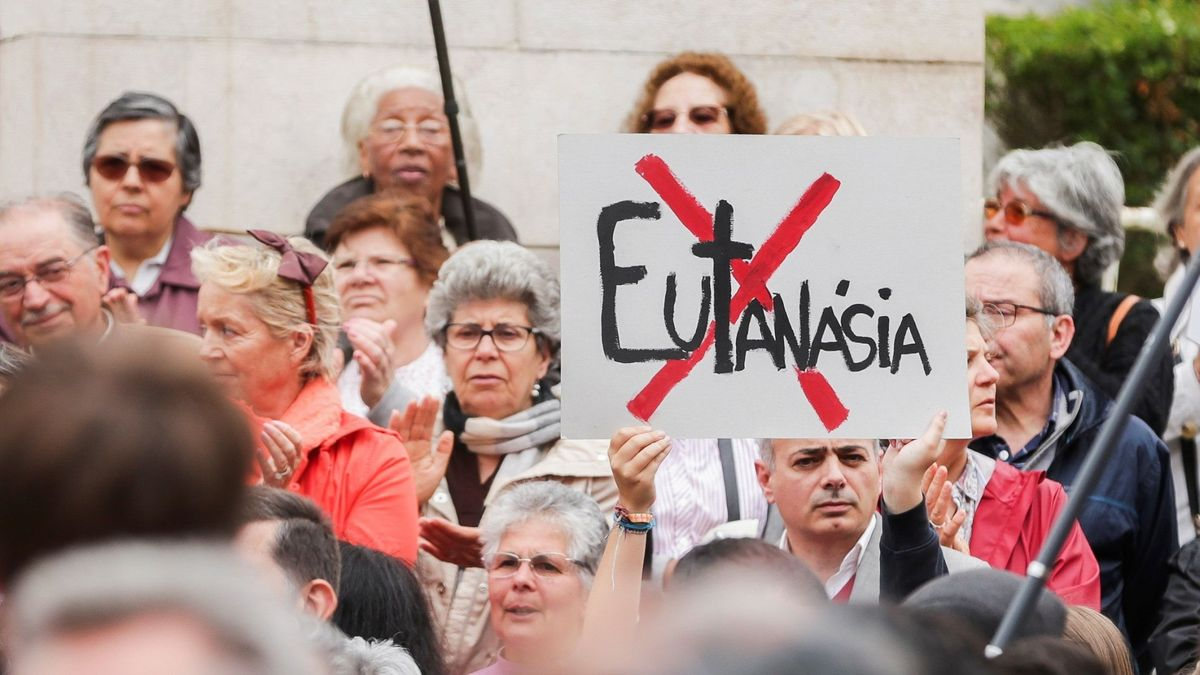 EutANÁSIA